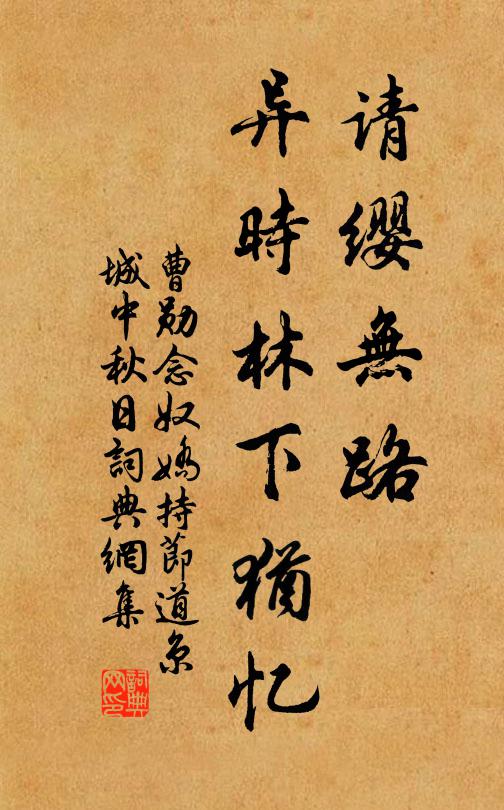 请缨無路
异時林下猶忆
曹勛念奴嬌持節道京
城中秋日詞典網集
詞典
网印